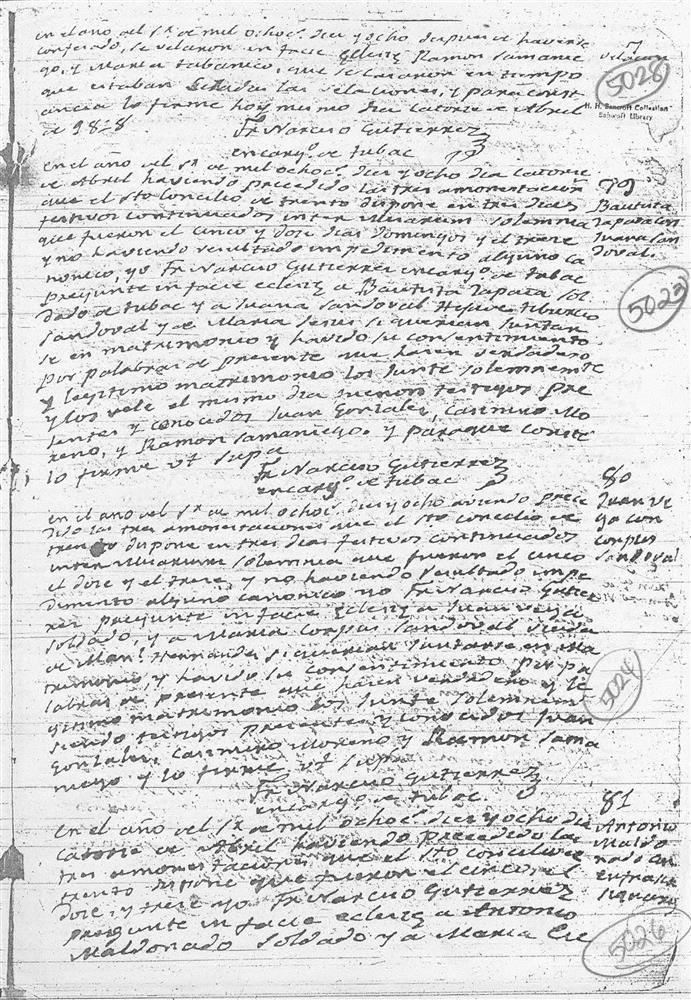 en el año del Sr. de mil ochoc. diez y ocho despues de haverse
confesado, se velaron in facie Eclesiæ Ramon Samanie
go, y Maria tabanico, que se casaron en tiempo
que estaban serradas las velaciones, y para const
ancia lo firme hoy mismo dia catorce de Abril
de 1818.
Velacion
5028
H. H. Bancroft Collection
Bancroft Library
Fr. Narciso Gutierrez
encargo. de tubac
en el año del Sr. de mil ochoc. diez y ocho dia catorce
de Abril haviendo precedido las tres amonestacion
que el Sto Concilio de trento dispone en tres dias
festivos continuados inter Misarum solemnia
que fueron el cinco y doce dias Domingos y el trece
y no haviendo resultado impedimento alguno ca
nonico, yo Fr. Narciso Gutierrez encargo. de tubac
pregunte in facie eclesiæ a Bautista Zapata sol
dado de tubac y a Juana Sandoval Hija de tiburcio
Sandoval y de Maria Jesus si querian juntar
se en matrimonio y havido su consentimiento
por palabras de presente que hacen verdadero
y legitimo matrimonio los junte solemnemente
y los vele el mismo dia fueron testigos pre
sentes y conocidos Juan Gonzalez, Casimiro Mo
reno, y Ramon Samaniego. y para que conste
lo firme ut supa
79
Bautista
Zapata con
Juana San
doval.
5023
Fr. Narciso Gutierrez
encargo. de tubac
en el año del Sr. de mil ochoc. diez y ocho aviendo prece
dido las tres amonestaciones que el Sto concilio de
trento dispone en tres dias festivos continuados
inter Misarum solemnia que fueron el cinco
el doce y el trece, y no haviendo resultado impe
dimento alguno canonico yo Fr. Narciso Gutier
rez pregunte in facie Eclesiæ a Juan Vega
soldado, y a Maria Corpus Sandoval Viuda
de Manl. Hernandez si querian juntarse en Ma
trimonio, y havido su consentimiento por pa
labras de presente que hacen verdadero y le
gitimo matrimonio los junte solemnem
siendo testigos presentes y conocidos Juan
Gonzalez, Casimiro Moreno y Ramon Sama
niego y lo firme ut supa
80
Juan Ve
ga con
Corpus
Sandoval
5024
Fr. Narciso Gutierrez
encargo. de tubac.
En el año del Sr. de mil ochoc. diez y ocho dia
catorce de Abril haviendo precedido las
tres amonestaciones que el Sto concilio de
trento dispone que fueron el cinco, el
doce, y trece yo Fr. Narciso Gutierrez
pregunte in facie eclesiæ a Antonio
Maldonado soldado y a Maria
81
Antonio
Maldo
nado con
5026